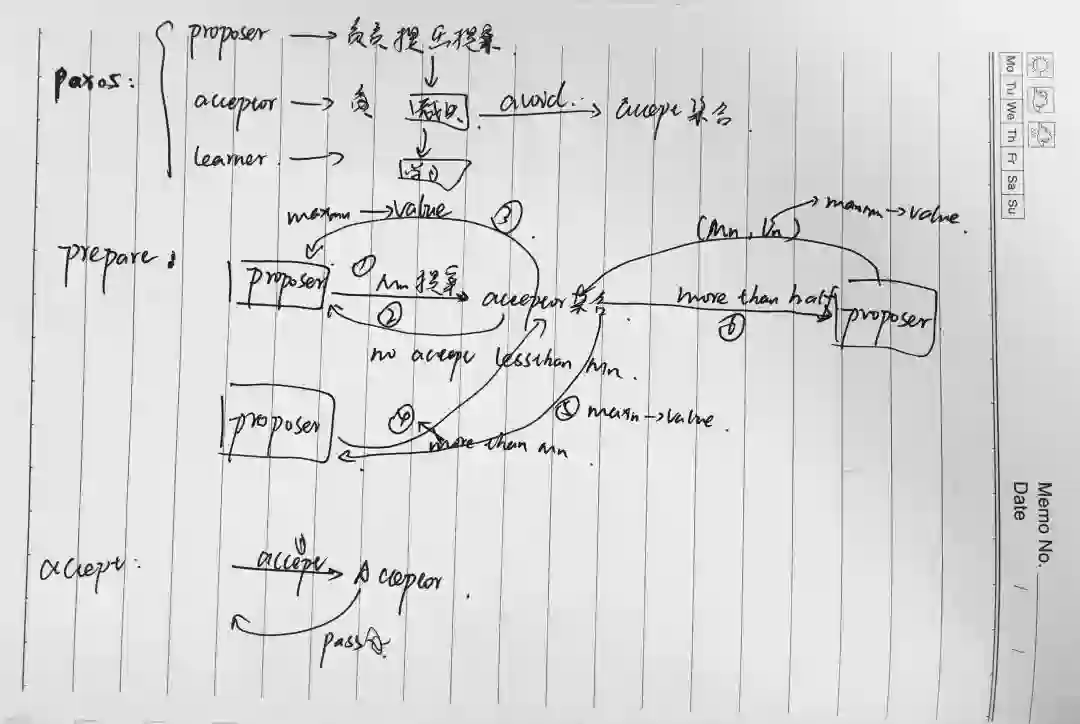 paxos:
proposer → 负责提出提案
acceptor → 负
avoid.
accept 集合
learner →
Mo Tu We Th Fr Sa Su
prepare:
maxmn → value
③
(Mn, Vn)
maxmn → value.
proposer
① Mn 提案
②
acceptor 集合
more than half
⑥
proposer
no accept less than Mn.
proposer
④
more than Mn
⑤ maxn → value.
Memo No.
Date / /
accept:
accept
Acceptor.
pass